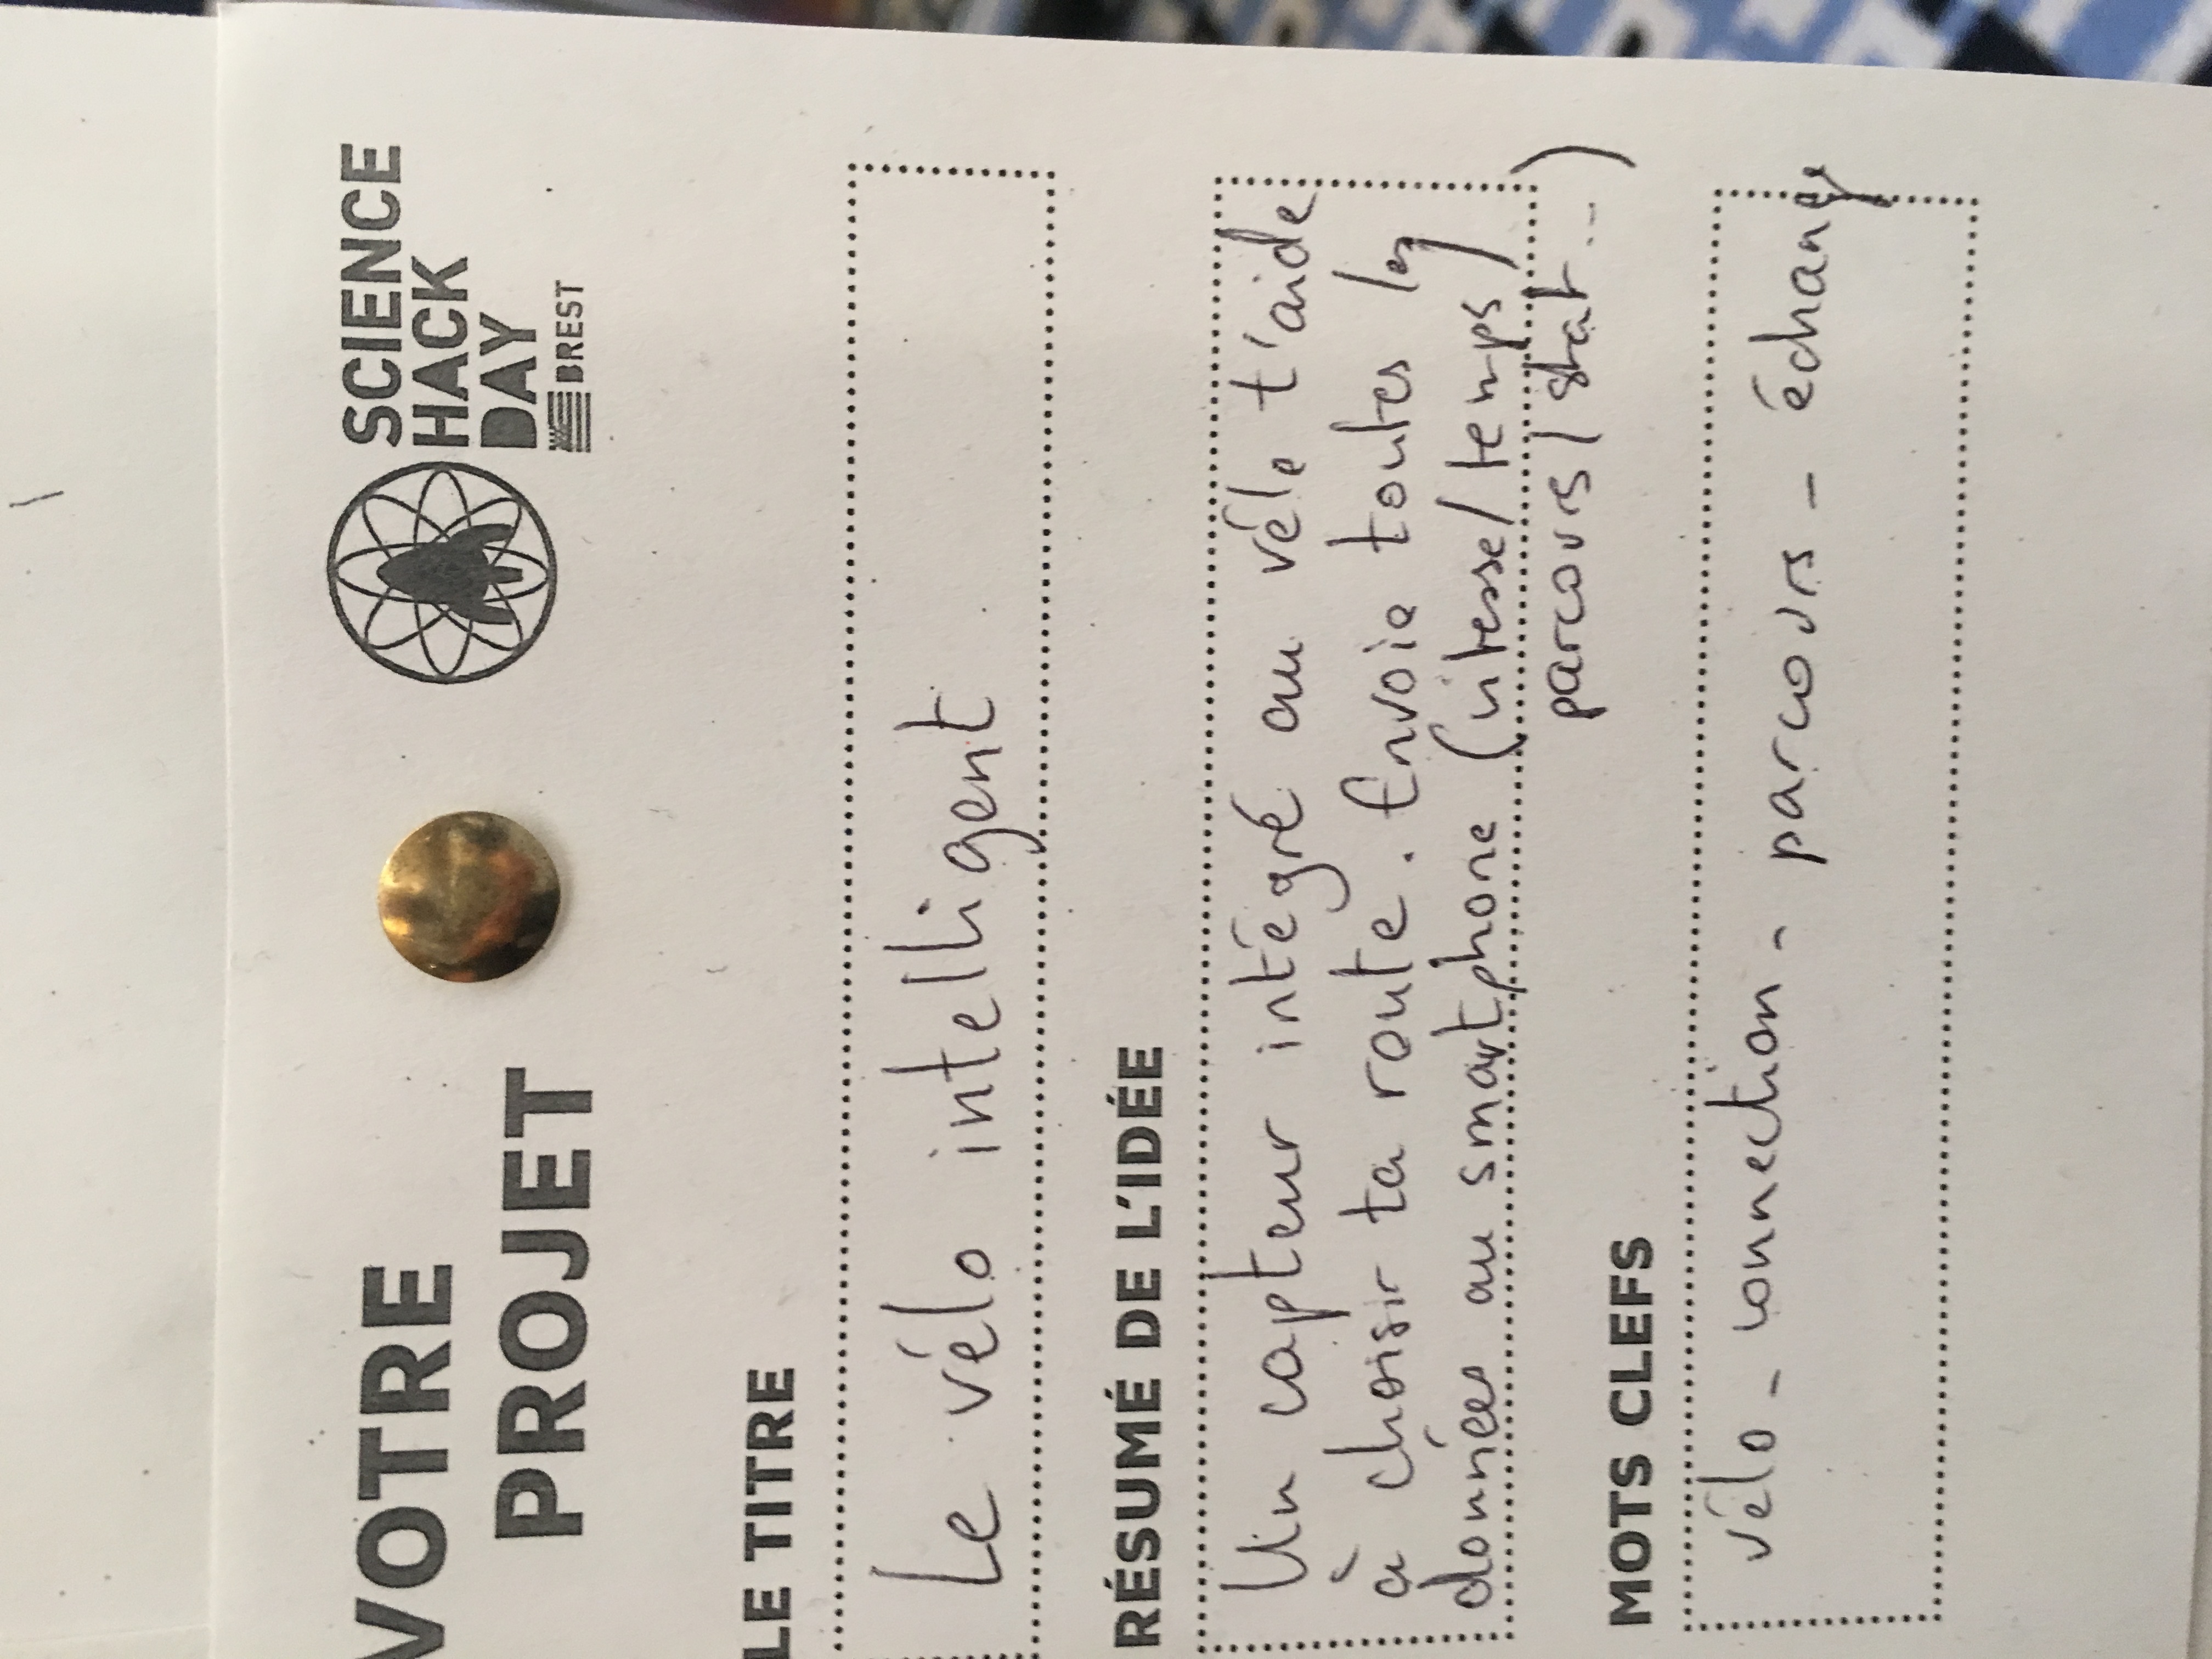 VOTRE
PROJET
SCIENCE
HACK
DAY
BREST
LE TITRE
Le vélo intelligent
RÉSUMÉ DE L'IDÉE
Un capteur intégré au vélo t'aide
à choisir ta route. Envoie toutes les
données au smartphone (vitesse/temps/
parcours/stat...)
MOTS CLEFS
vélo - connection - parcours - échange